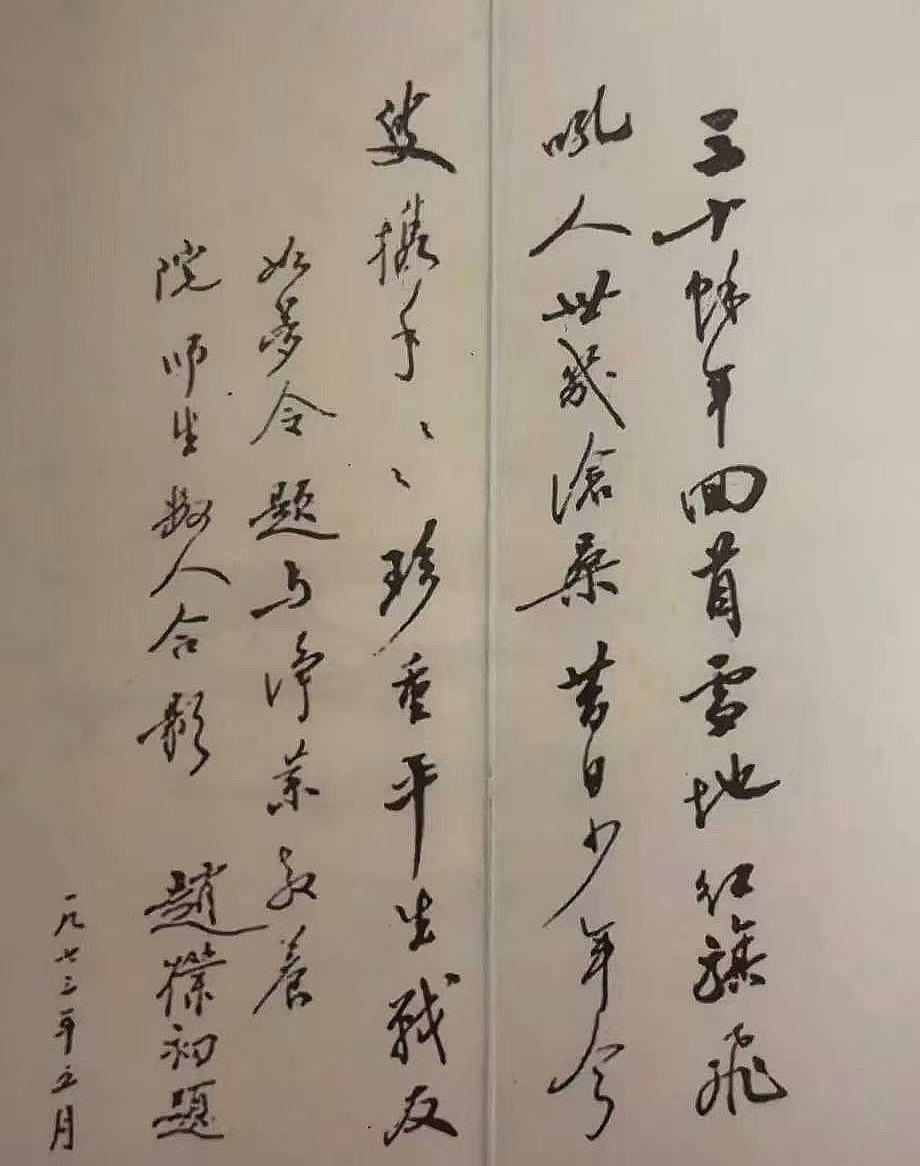 三十馀年回首雪地红旗飞
吼人世几沧桑昔日少年今
叟携手〻〻珍重平生战友
如梦令题与净业教养
院师生数人合影
赵朴初题
一九七三年五月